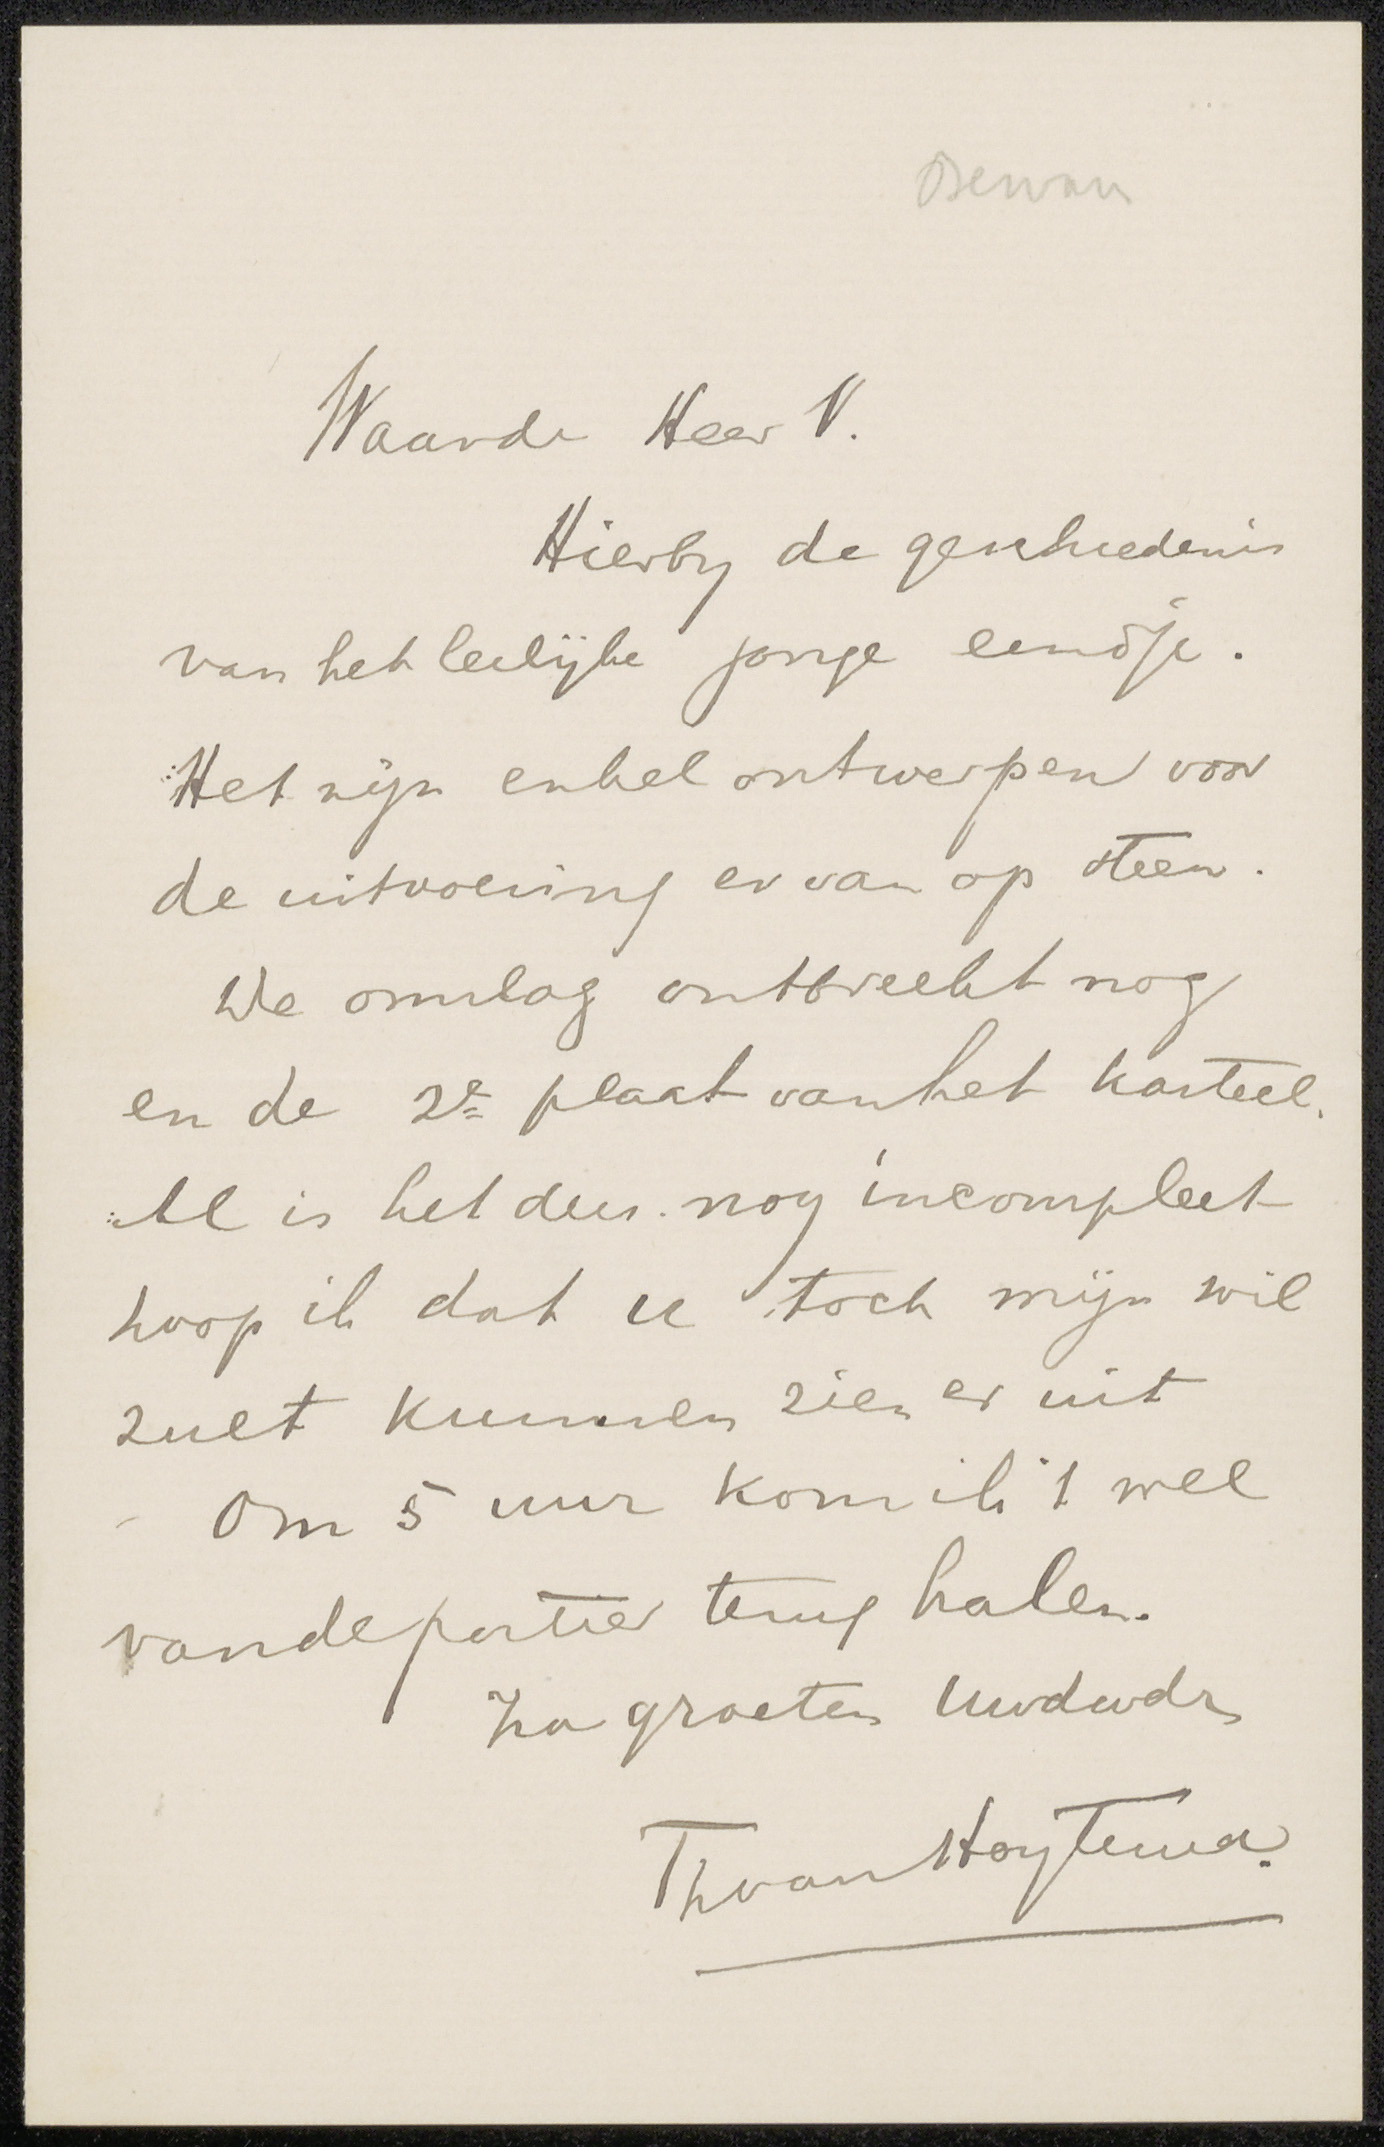 Waarde Heer V.
Hierby de geschiedenis
van het leelijke jonge eendje.
Het zijn enkel ontwerpen voor
de uitvoering ervan op steen.
De omslag ontbreekt nog
en de 2e plaat van het kasteel.
Al is het dus nog incompleet
hoop ik dat u toch mijn wil
zult kunnen zien er uit
Om 5 uur kom ik 't wel
van de portier terug halen.
Na groeten Uwdwdr
Th van Hoytema.